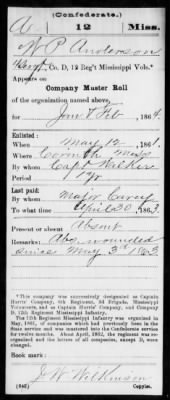 (Confederate.)
A 12 Miss.
W P Anderson
Co. D, 12 Reg't Mississippi Vols.*
Appears on
Company Muster Roll
of the organization named above,
for Jan & Feb, 1864.
Enlisted:
When May 12, 1861.
Where Corinth Miss
By whom Capt Walker
Period 1 yr
Last paid:
By whom Major Carey
To what time April 30, 1863.
Present or absent Absent
Remarks: Abs. wounded
since May 3d 1863
*This company was successively designated as Captain
Harris' Company, 4th Regiment, 3d Brigade, Mississippi
Volunteers, and as Captain Harris' Company, and Company
D, 12th Regiment Mississippi Infantry.
The 12th Regiment Mississippi Infantry was organized in
May, 1861, of companies which had previously been in the
State service and was mustered into the Confederate service
for twelve months. About April, 1862, the regiment was re-
organized and the letters of all companies, except D, were
changed.
Book mark:
J W Wilkinson
(642) Copyist.